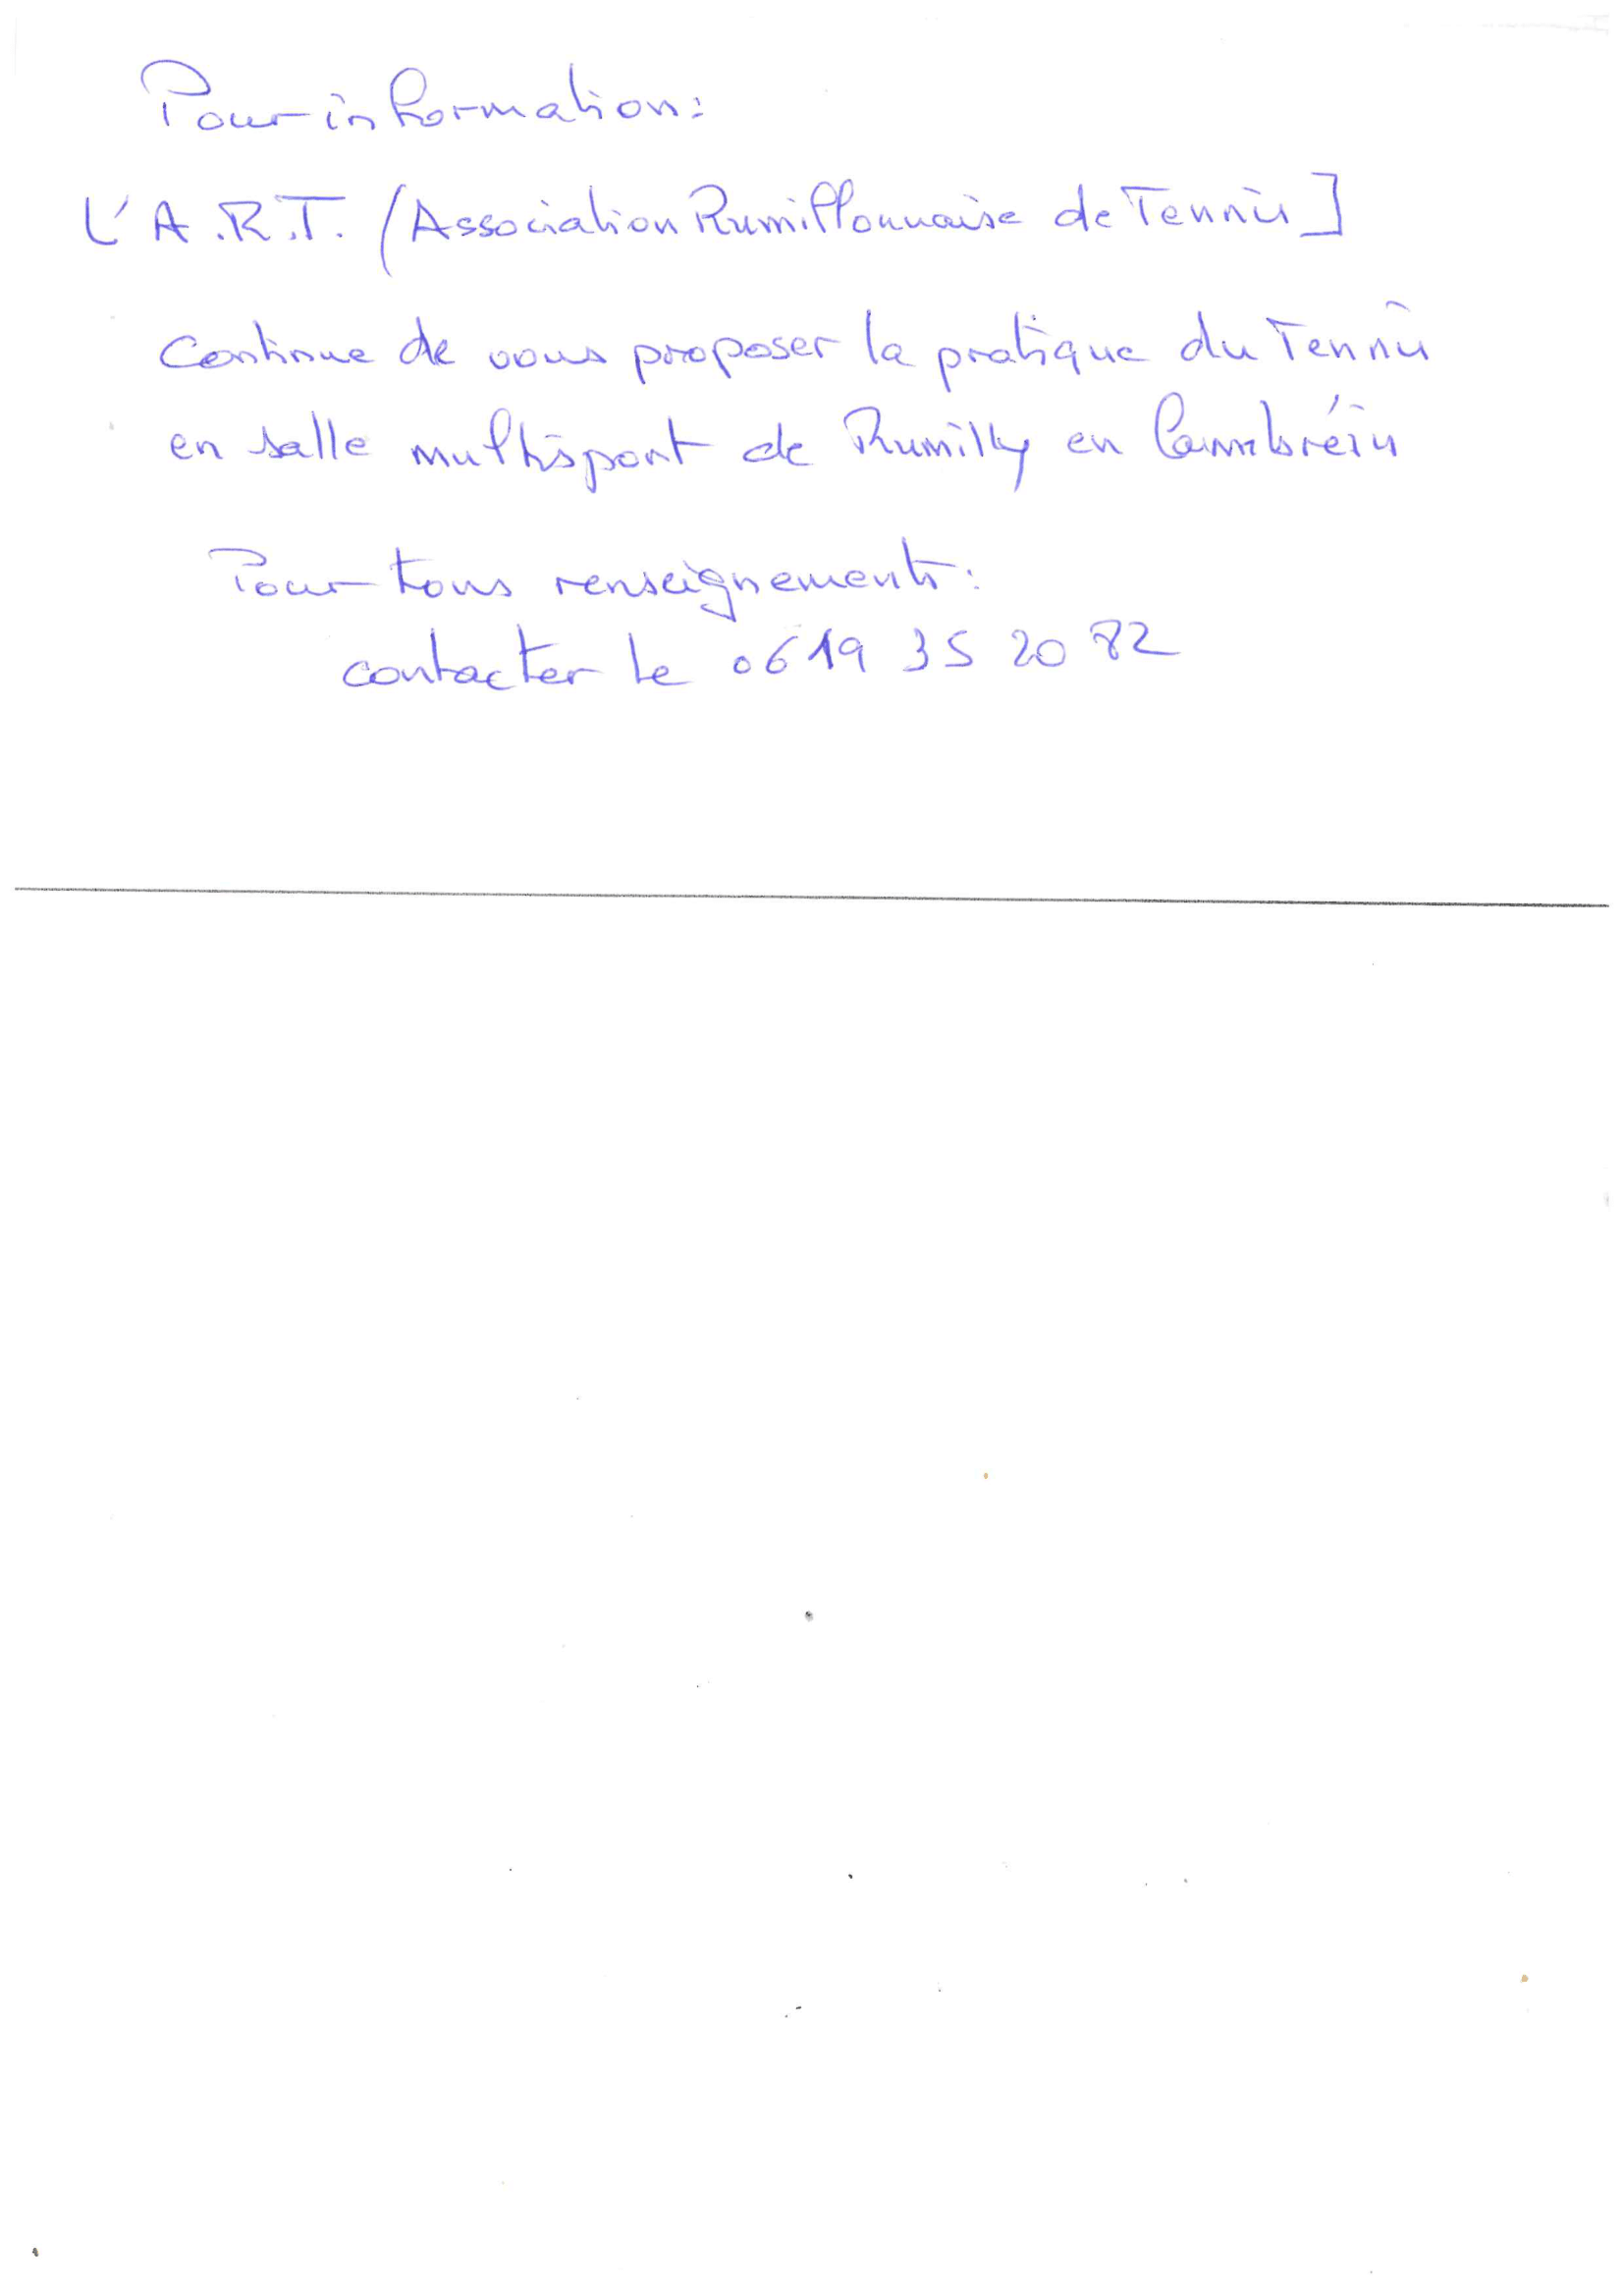 Pour information:
L'A.R.T. (Association Rumillonnaise de Tennis]
continue de vous proposer la pratique du Tennis
en salle multisport de Rumilly en Cambrésis
Pour tous renseignements:
contacter le 06 19 35 20 82